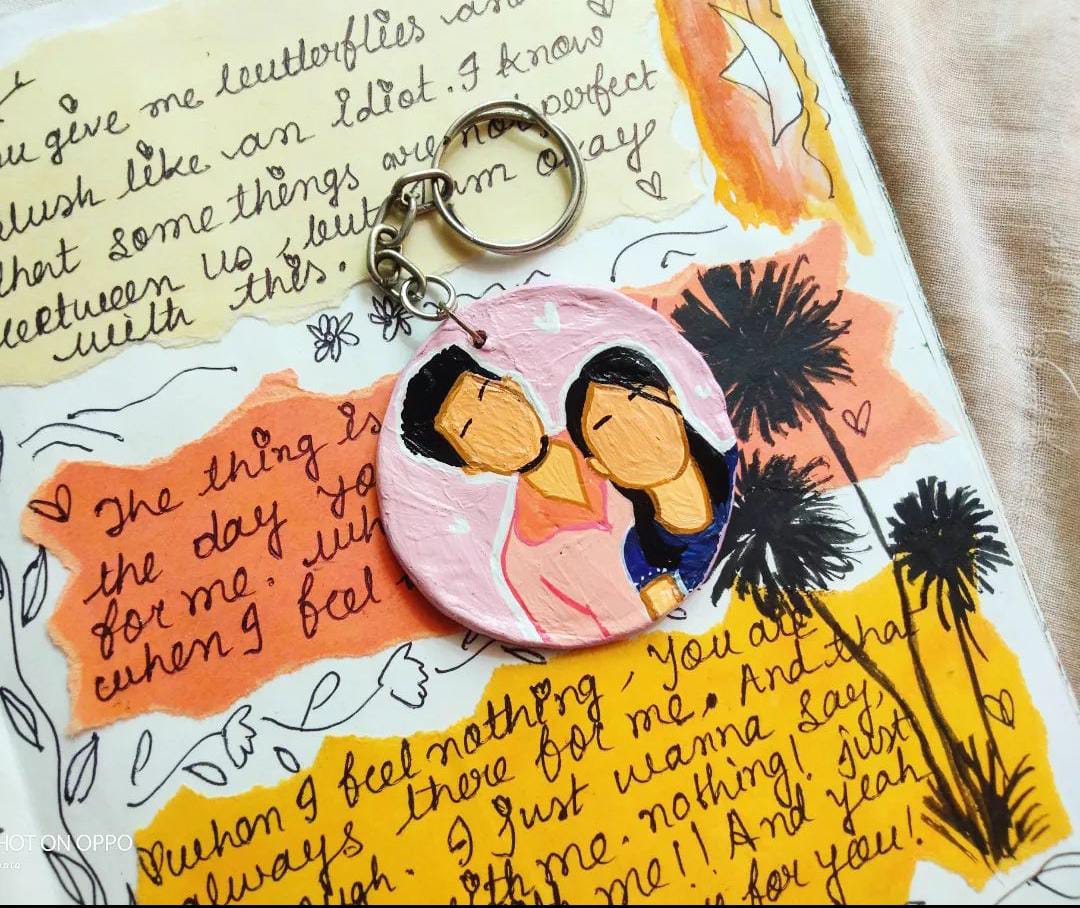 give me butterflies and
blush like an idiot. I know
that some things are not perfect
between us, but I am okay
with this.
The thing is
the day yo
for me. wh
when I feel
when I feel nothing, you are
always there for me. And tha
ugh. I just wanna say,
ith me. nothing! just
me!! And yeah
for you!
HOT ON OPPO